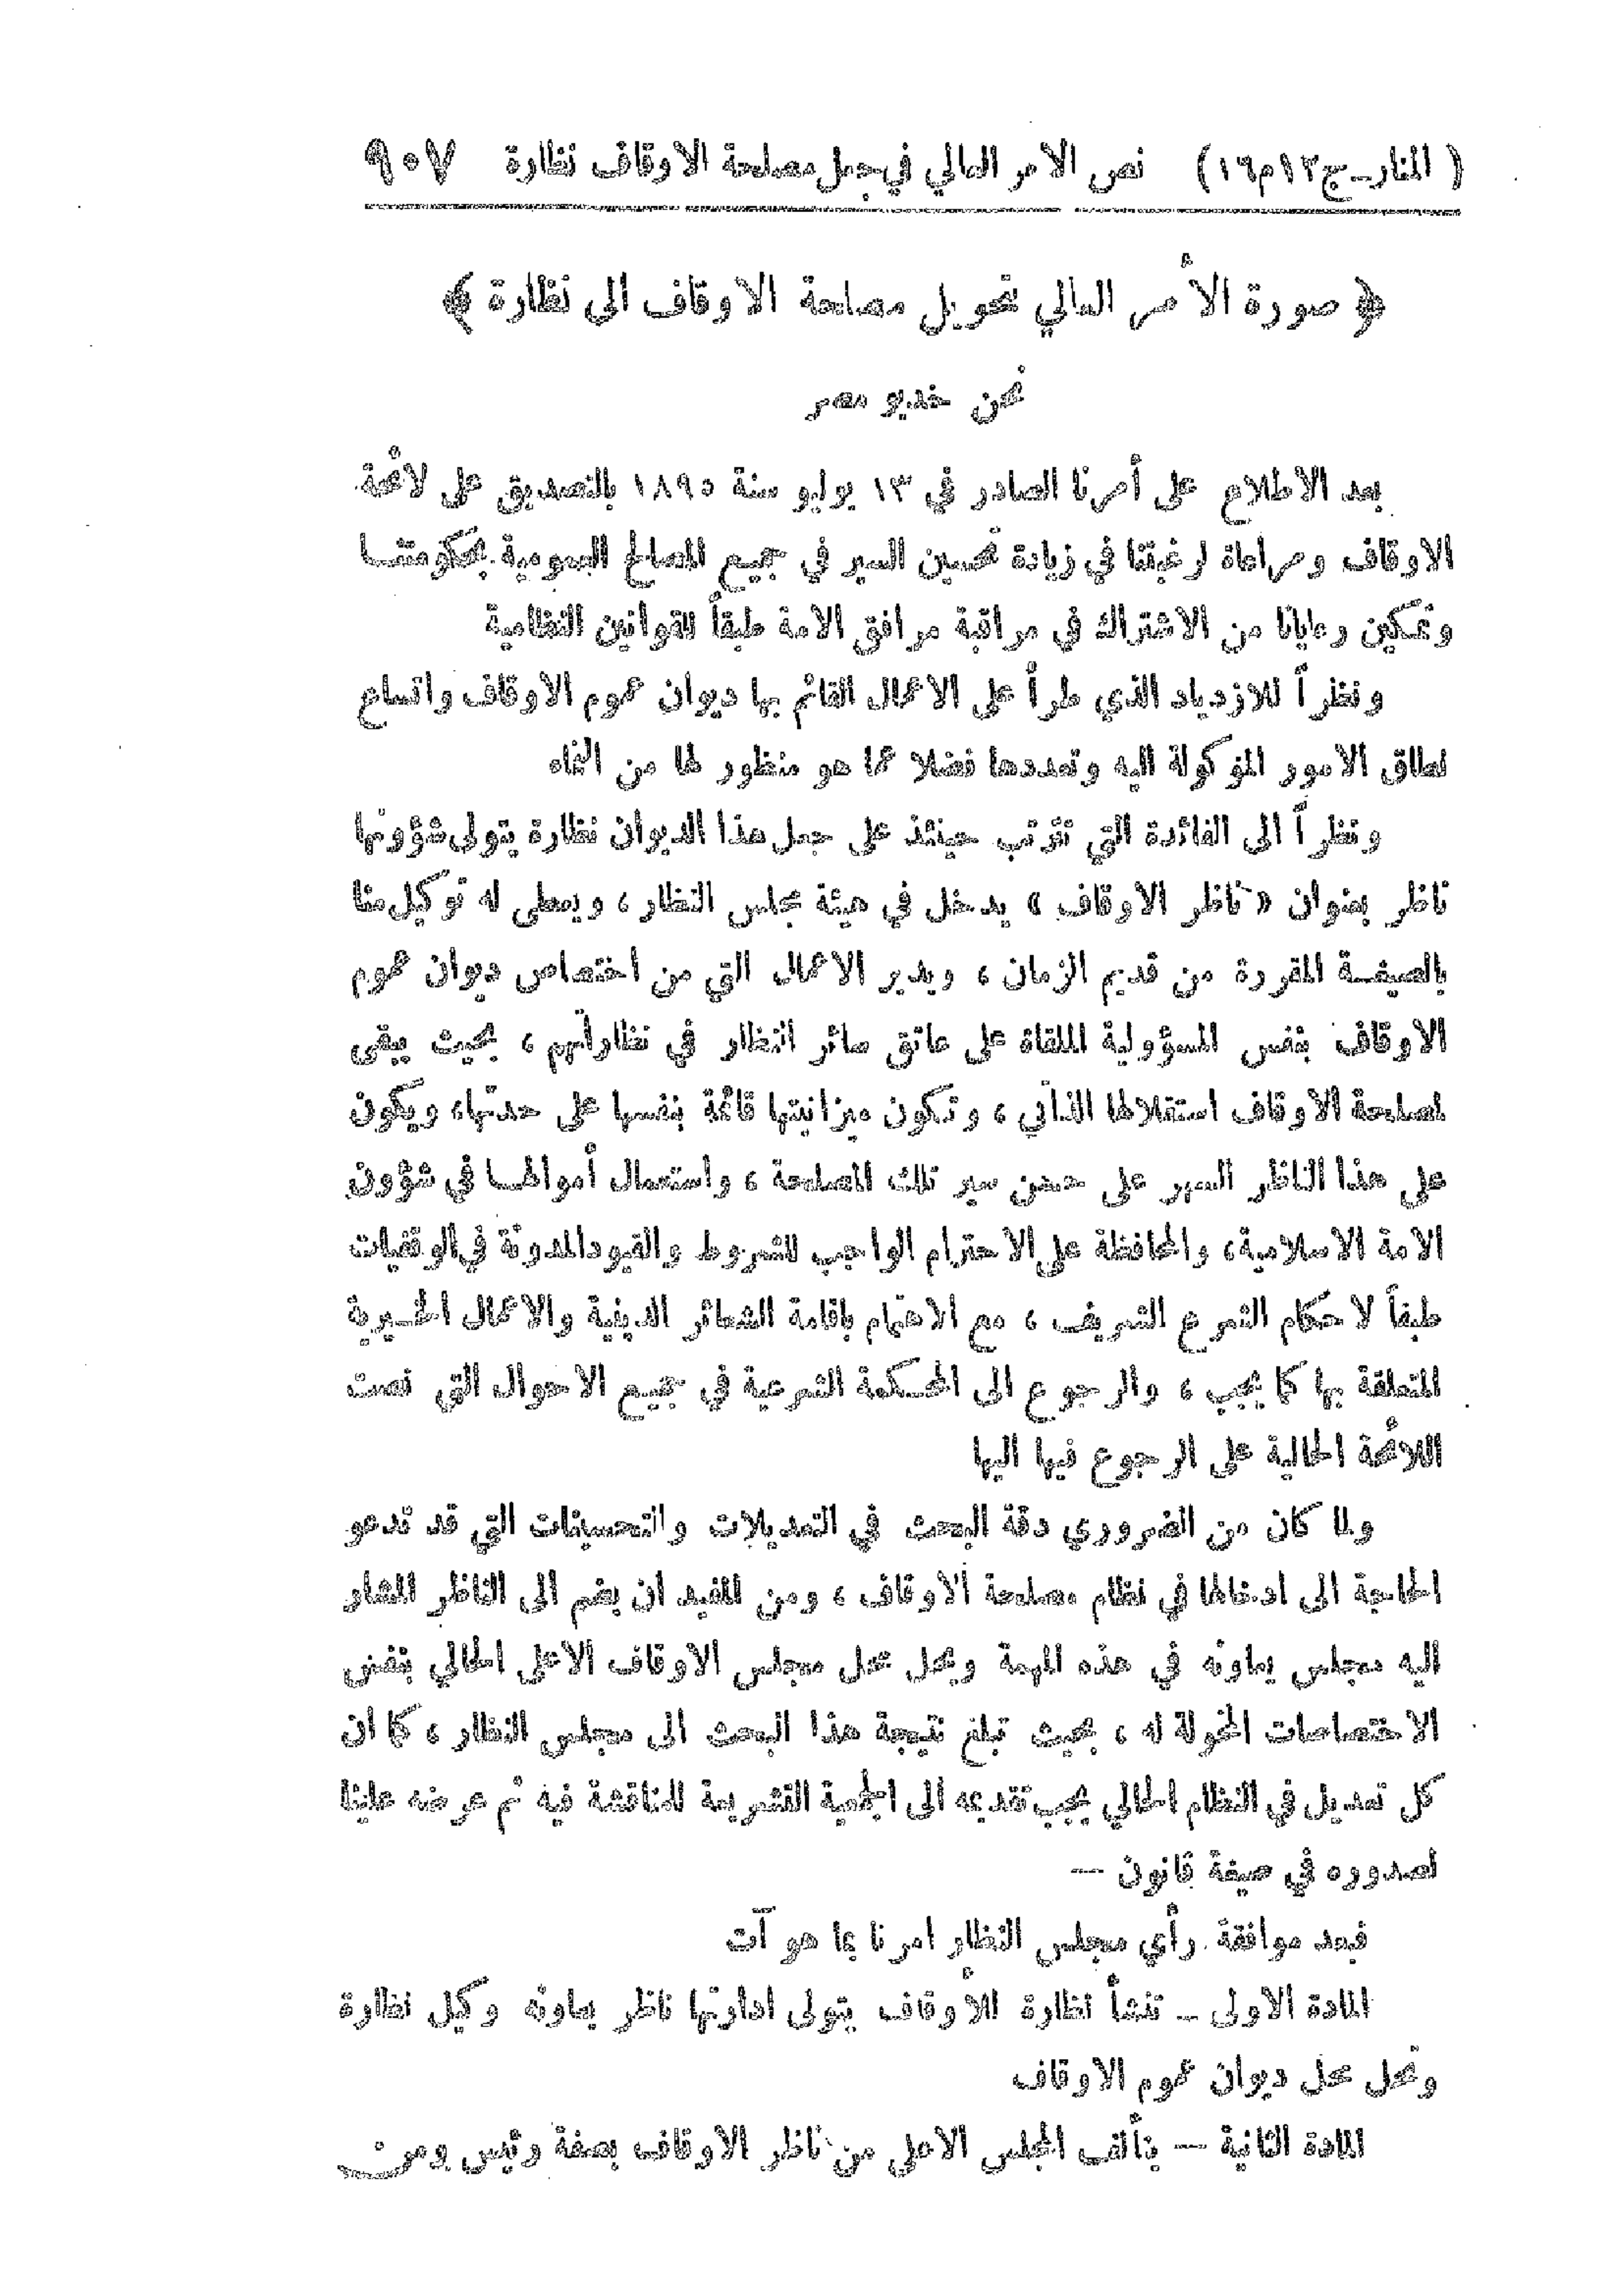 ( المنار ـ ج١٢م١٦) نص الامر العالي في جعل مصلحة الاوقاف نظارة ٩٠٧
﴿ صورة الأمر العالي بتحويل مصلحة الاوقاف الى نظارة ﴾
نحن خديو مصر
بعد الاطلاع على أمرنا الصادر في ١٣ يوليو سنة ١٨٩٥ بالتصديق على لائحة
الاوقاف ومراعاة لرغبتنا في زيادة تحسين السير في جميع المصالح العمومية بحكومتنا
وتمكين رعايانا من الاشتراك في مراقبة مرافق الامة طبقاً للقوانين النظامية
ونظراً للازدياد الذي طرأ على الاعمال القائم بها ديوان عموم الاوقاف واتساع
نطاق الامور الموكولة اليه وتعددها فضلا عما هو منظور لها من النماء
ونظراً الى الفائدة التي تترتب حينئذ على جعل هذا الديوان نظارة يتولى شؤونها
ناظر بعنوان « ناظر الاوقاف » يدخل في هيئة مجلس النظار ، ويعطى له توكيل منا
بالصيغة المقررة من قديم الزمان ، ويدير الاعمال التي من اختصاص ديوان عموم
الاوقاف بنفس المسؤولية الملقاة على عاتق سائر النظار في نظاراتهم ، بحيث يبقى
لمصلحة الاوقاف استقلالها الذاتي ، وتكون ميزانيتها قائمة بنفسها على حدتها، ويكون
على هذا الناظر السهر على حسن سير تلك المصلحة ، واستعمال أموالها في شؤون
الامة الاسلامية، والمحافظة على الاحترام الواجب للشروط والقيود المدونة في الوقفيات
طبقاً لاحكام الشرع الشريف ، مع الاهتمام باقامة الشعائر الدينية والاعمال الخيرية
المتعلقة بها كما يجب ، والرجوع الى المحكمة الشرعية في جميع الاحوال التي نصت
اللائحة الحالية على الرجوع فيها اليها
ولما كان من الضروري دقة البحث في التعديلات والتحسينات التي قد تدعو
الحاجة الى ادخالها في نظام مصلحة الاوقاف ، ومن المفيد ان يضم الى الناظر المشار
اليه مجلس يعاونه في هذه المهمة ويحل محل مجلس الاوقاف الاعلى الحالي بنفس
الاختصاصات المخولة له ، بحيث تبلغ نتيجة هذا البحث الى مجلس النظار ، كما ان
كل تعديل في النظام الحالي يجب تقديمه الى الجمعية التشريعية للمناقشة فيه ثم عرضه علينا
لصدوره في صيغة قانون —
فبعد موافقة رأي مجلس النظار امرنا بما هو آت
المادة الاولى ـ تنشأ نظارة للأوقاف يتولى ادارتها ناظر يعاونه وكيل نظارة
وتحل محل ديوان عموم الاوقاف
المادة الثانية — يتألف المجلس الاعلى من ناظر الاوقاف بصفة رئيس ومن